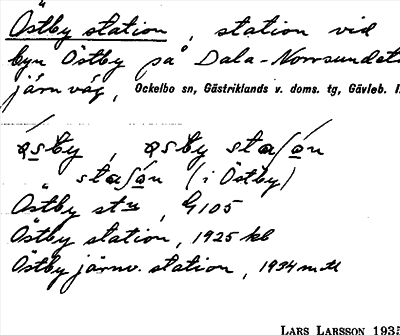 Östby station, station vid
byn Östby på Dala-Norrsundets
järnväg, Ockelbo sn, Gästriklands v. doms. tg, Gävleb. l.
ǫ́sby, ǫsby staʃǻn
" staʃǻn (i Östby)
Östby stn, G105
Östby station, 1925 kb
Östby järnv. station, 1934 mtl
LARS LARSSON 1935